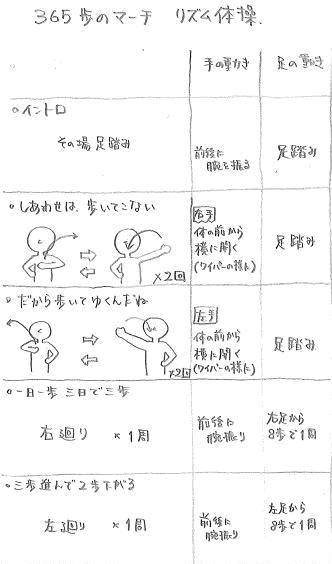 365歩のマーチ リズム体操.
手の動き 足の動き
○イントロ
その場足踏み
前後に
腕を振る
足踏み
○しあわせは、歩いてこない
×2回
右手
体の前から
横に開く
(ワイパーの様に)
足踏み
○だから歩いてゆくんだね
×2回
左手
体の前から
横に開く
(ワイパーの様に)
足踏み
○一日一歩 三日で三歩
右廻り ×1周
前後に
腕振り
右足から
8歩で1周
○三歩進んで2歩下がる
左廻り ×1周
前後に
腕振り
左足から
8歩で1周